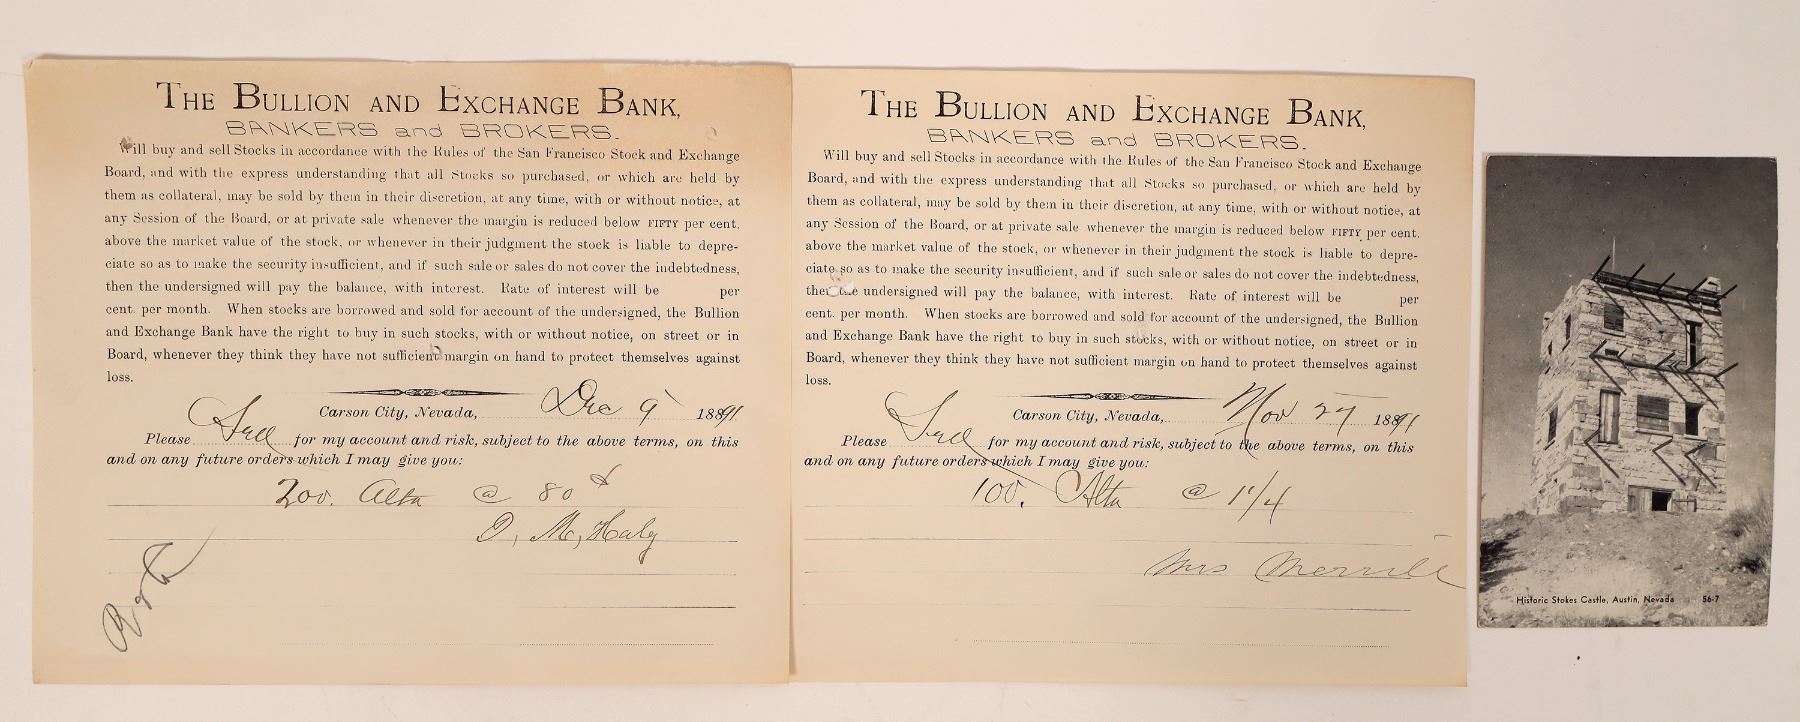 THE BULLION AND EXCHANGE BANK,
BANKERS and BROKERS.
Will buy and sell Stocks in accordance with the Rules of the San Francisco Stock and Exchange
Board, and with the express understanding that all Stocks so purchased, or which are held by
them as collateral, may be sold by them in their discretion, at any time, with or without notice, at
any Session of the Board, or at private sale whenever the margin is reduced below FIFTY per cent.
above the market value of the stock, or whenever in their judgment the stock is liable to depre-
ciate so as to make the security insufficient, and if such sale or sales do not cover the indebtedness,
then the undersigned will pay the balance, with interest. Rate of interest will be per
cent. per month. When stocks are borrowed and sold for account of the undersigned, the Bullion
and Exchange Bank have the right to buy in such stocks, with or without notice, on street or in
Board, whenever they think they have not sufficient margin on hand to protect themselves against
loss.
Carson City, Nevada, Dec 9 1891
Please Sell for my account and risk, subject to the above terms, on this
and on any future orders which I may give you:
200. Alta @ 80¢
D, M, Haly
THE BULLION AND EXCHANGE BANK,
BANKERS and BROKERS.
Will buy and sell Stocks in accordance with the Rules of the San Francisco Stock and Exchange
Board, and with the express understanding that all Stocks so purchased, or which are held by
them as collateral, may be sold by them in their discretion, at any time, with or without notice, at
any Session of the Board, or at private sale whenever the margin is reduced below FIFTY per cent.
above the market value of the stock, or whenever in their judgment the stock is liable to depre-
ciate so as to make the security insufficient, and if such sale or sales do not cover the indebtedness,
then the undersigned will pay the balance, with interest. Rate of interest will be per
cent. per month. When stocks are borrowed and sold for account of the undersigned, the Bullion
and Exchange Bank have the right to buy in such stocks, with or without notice, on street or in
Board, whenever they think they have not sufficient margin on hand to protect themselves against
loss.
Carson City, Nevada, Nov 27 1891
Please Sell for my account and risk, subject to the above terms, on this
and on any future orders which I may give you:
100. Alta @ 1 1/4
Mrs Merrill
Historic Stokes Castle, Austin, Nevada 56-7